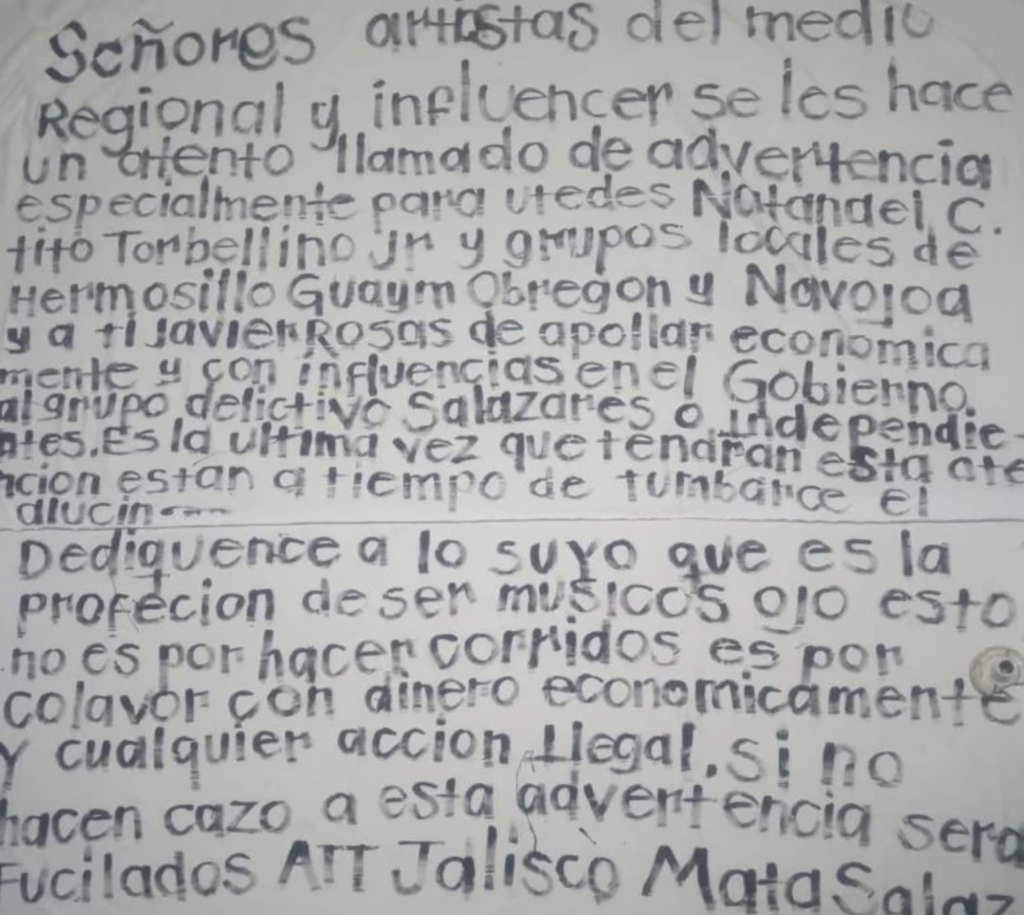 Señores artistas del medio
Regional y influencer se les hace
un atento llamado de advertencia
especialmente para utedes Natanael C.
tito Torbellino Jr y grupos locales de
Hermosillo Guaym Obregon y Navojoa
y a ti Javier Rosas de apollar economica
mente y con influencias en el Gobierno
al grupo delictivo Salazares o independie-
ntes. Es la ultima vez que tendran esta ate
ncion estan a tiempo de tumbarce el
alucin----
Dediquence a lo suyo que es la
profecion de ser musicos ojo esto
no es por hacer corridos es por
colavor con dinero economicamente
y cualquier accion Ilegal. si no
hacen cazo a esta advertencia sera
Fucilados ATT Jalisco Mata Salaz